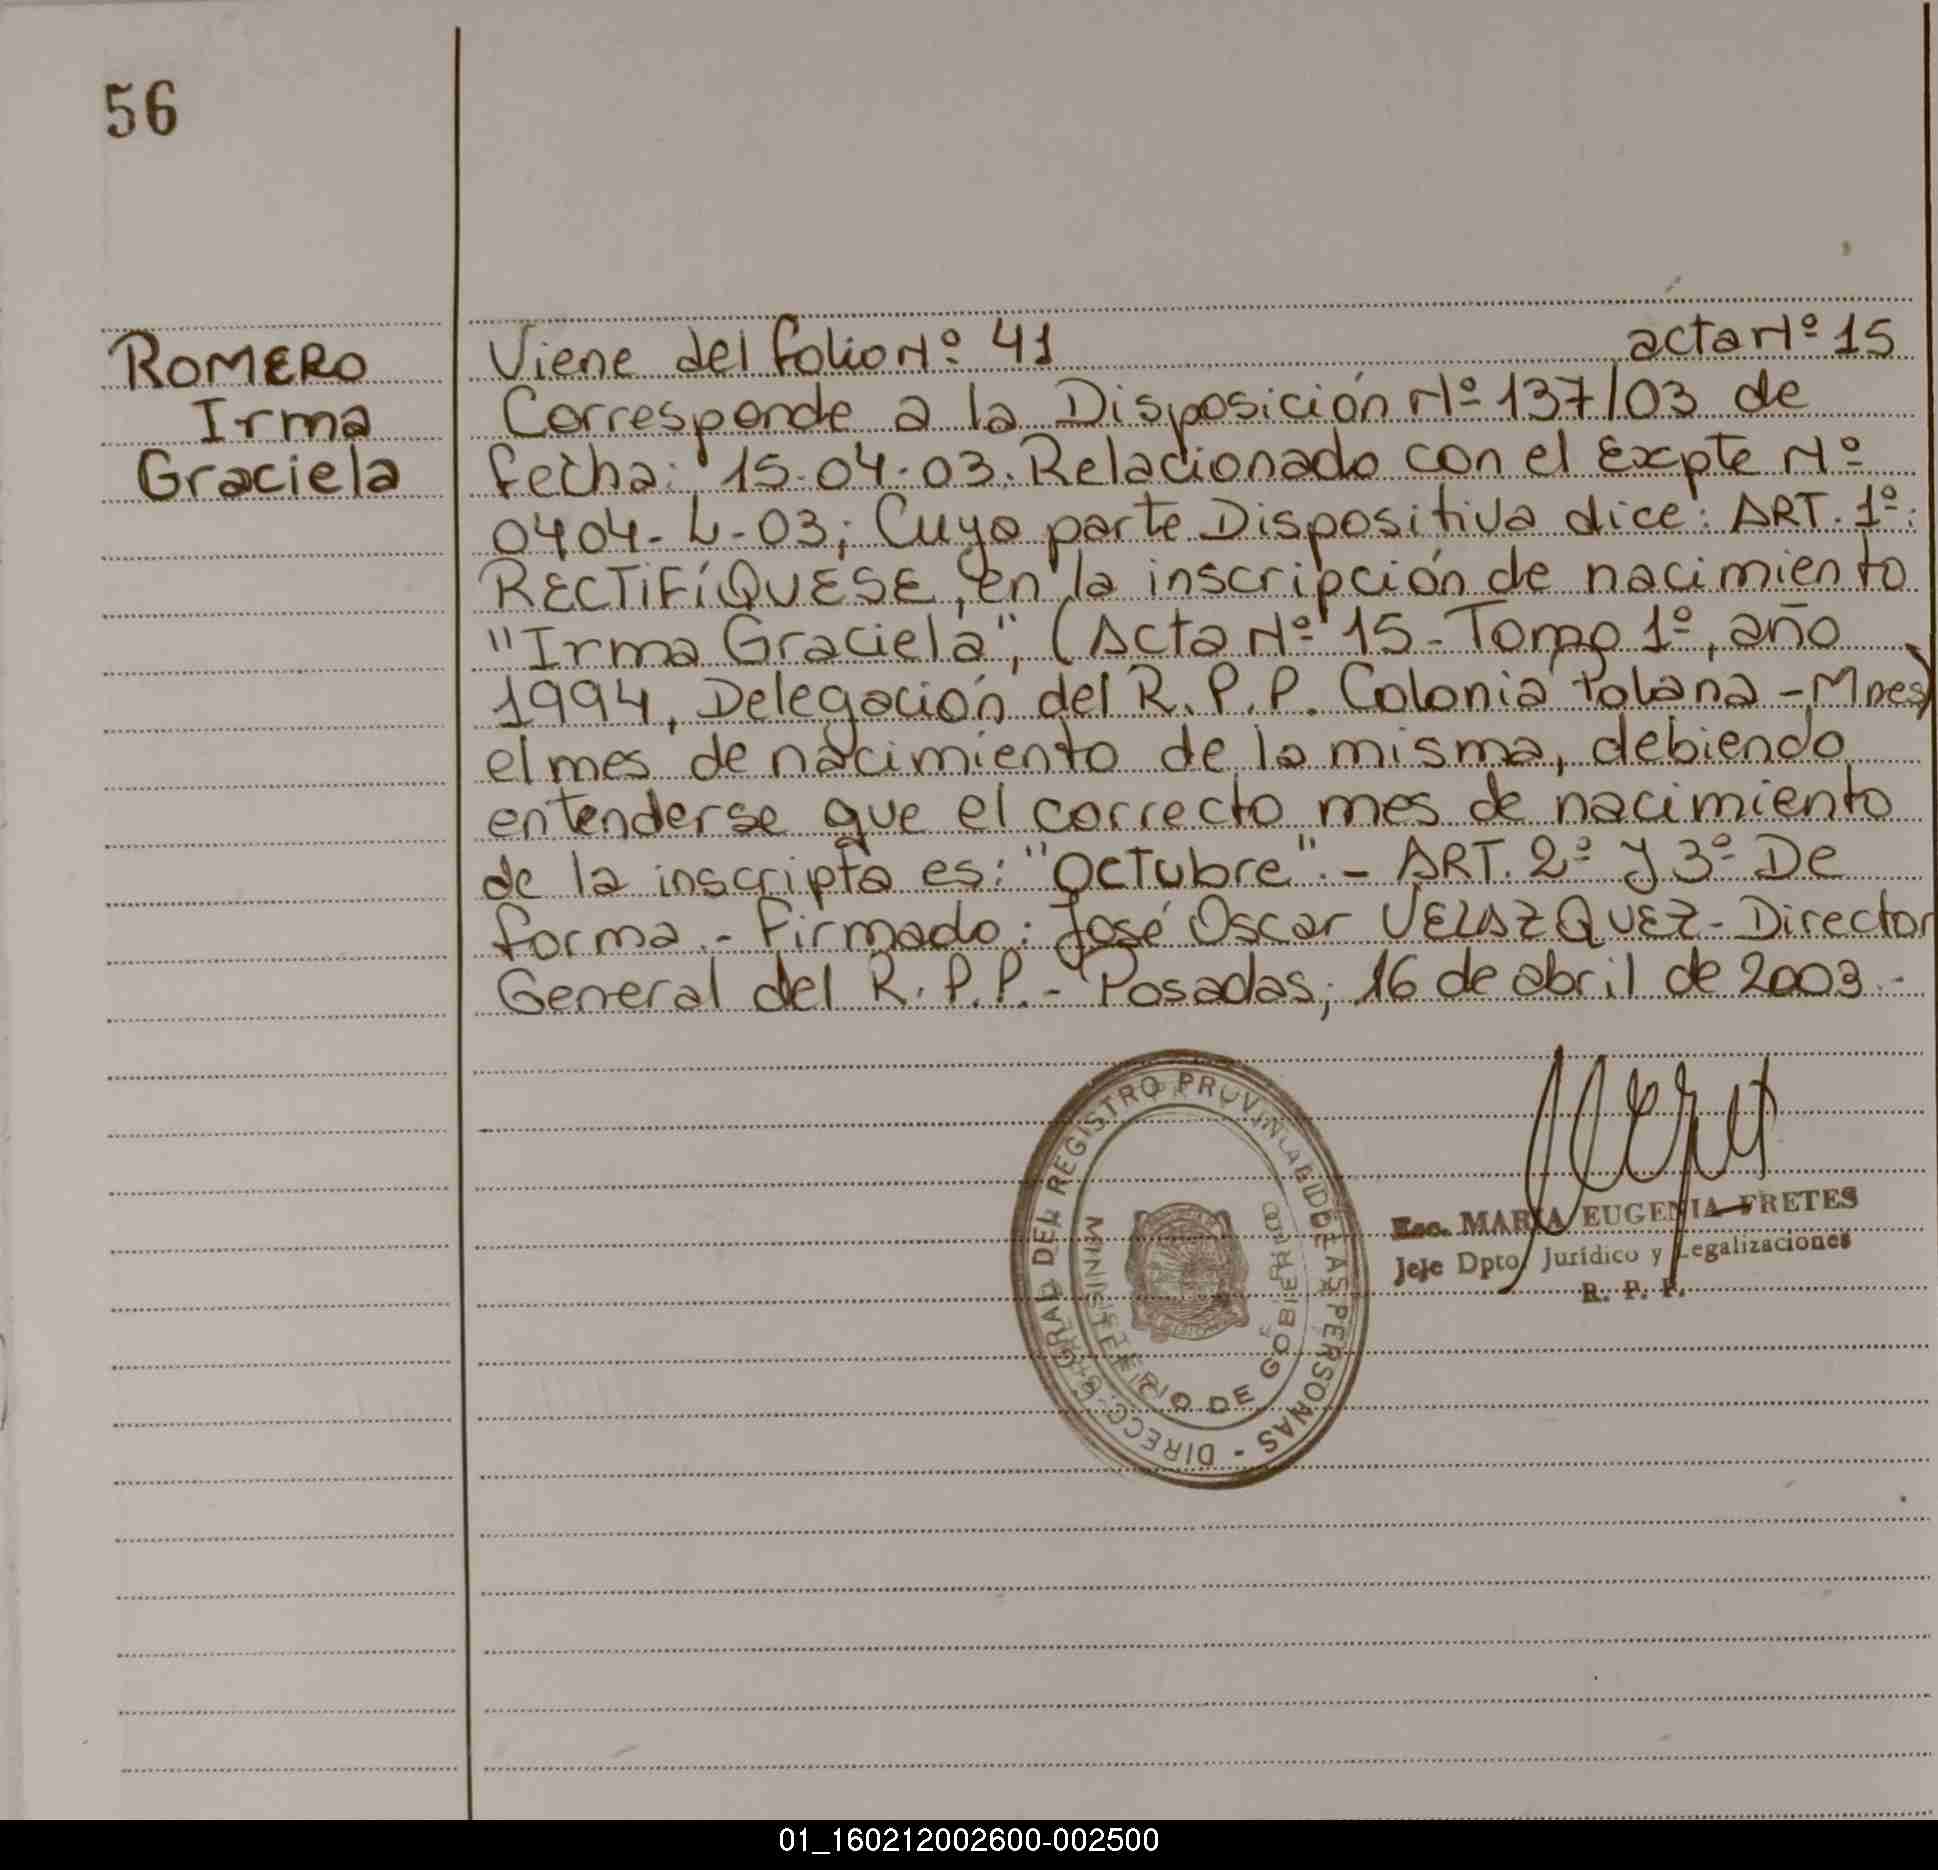 56
ROMERO
Irma
Graciela
Viene del folio Nº 41 acta Nº 15
Corresponde a la Disposición Nº 137/03 de
fecha: 15-04-03. Relacionado con el Expte Nº
0404-L-03; Cuya parte Dispositiva dice: ART. 1º:
RECTIFÍQUESE, en la inscripción de nacimiento
"Irma Graciela", (Acta Nº 15 - Tomo 1º, año
1994, Delegación del R.P.P. Colonia Polana - Mnes)
el mes de nacimiento de la misma, debiendo
entenderse que el correcto mes de nacimiento
de la inscripta es: "Octubre".- ART. 2º y 3º De
forma.- Firmado: José Oscar VELAZQUEZ - Director
General del R.P.P.- Posadas, 16 de abril de 2003.-
DIRECC. GRAL DEL REGISTRO PROVINCIAL DE LAS PERSONAS -
MINISTERIO DE GOBIERNO
Esc. MARIA EUGENIA FRETES
Jefe Dpto. Jurídico y Legalizaciones
R. P. P.
01_160212002600-002500